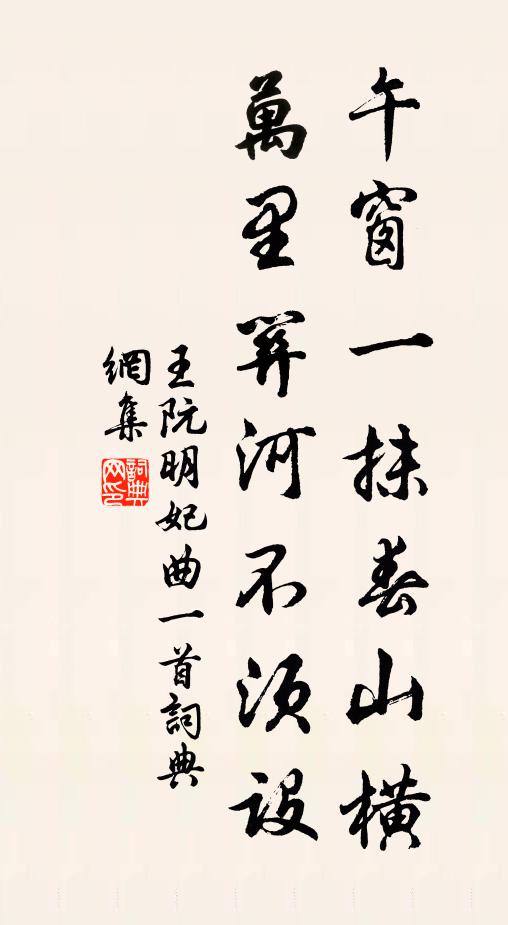 午窗一抹春山橫
萬里關河不須設
王阮明妃曲一首詞典
網集
詞典
网印